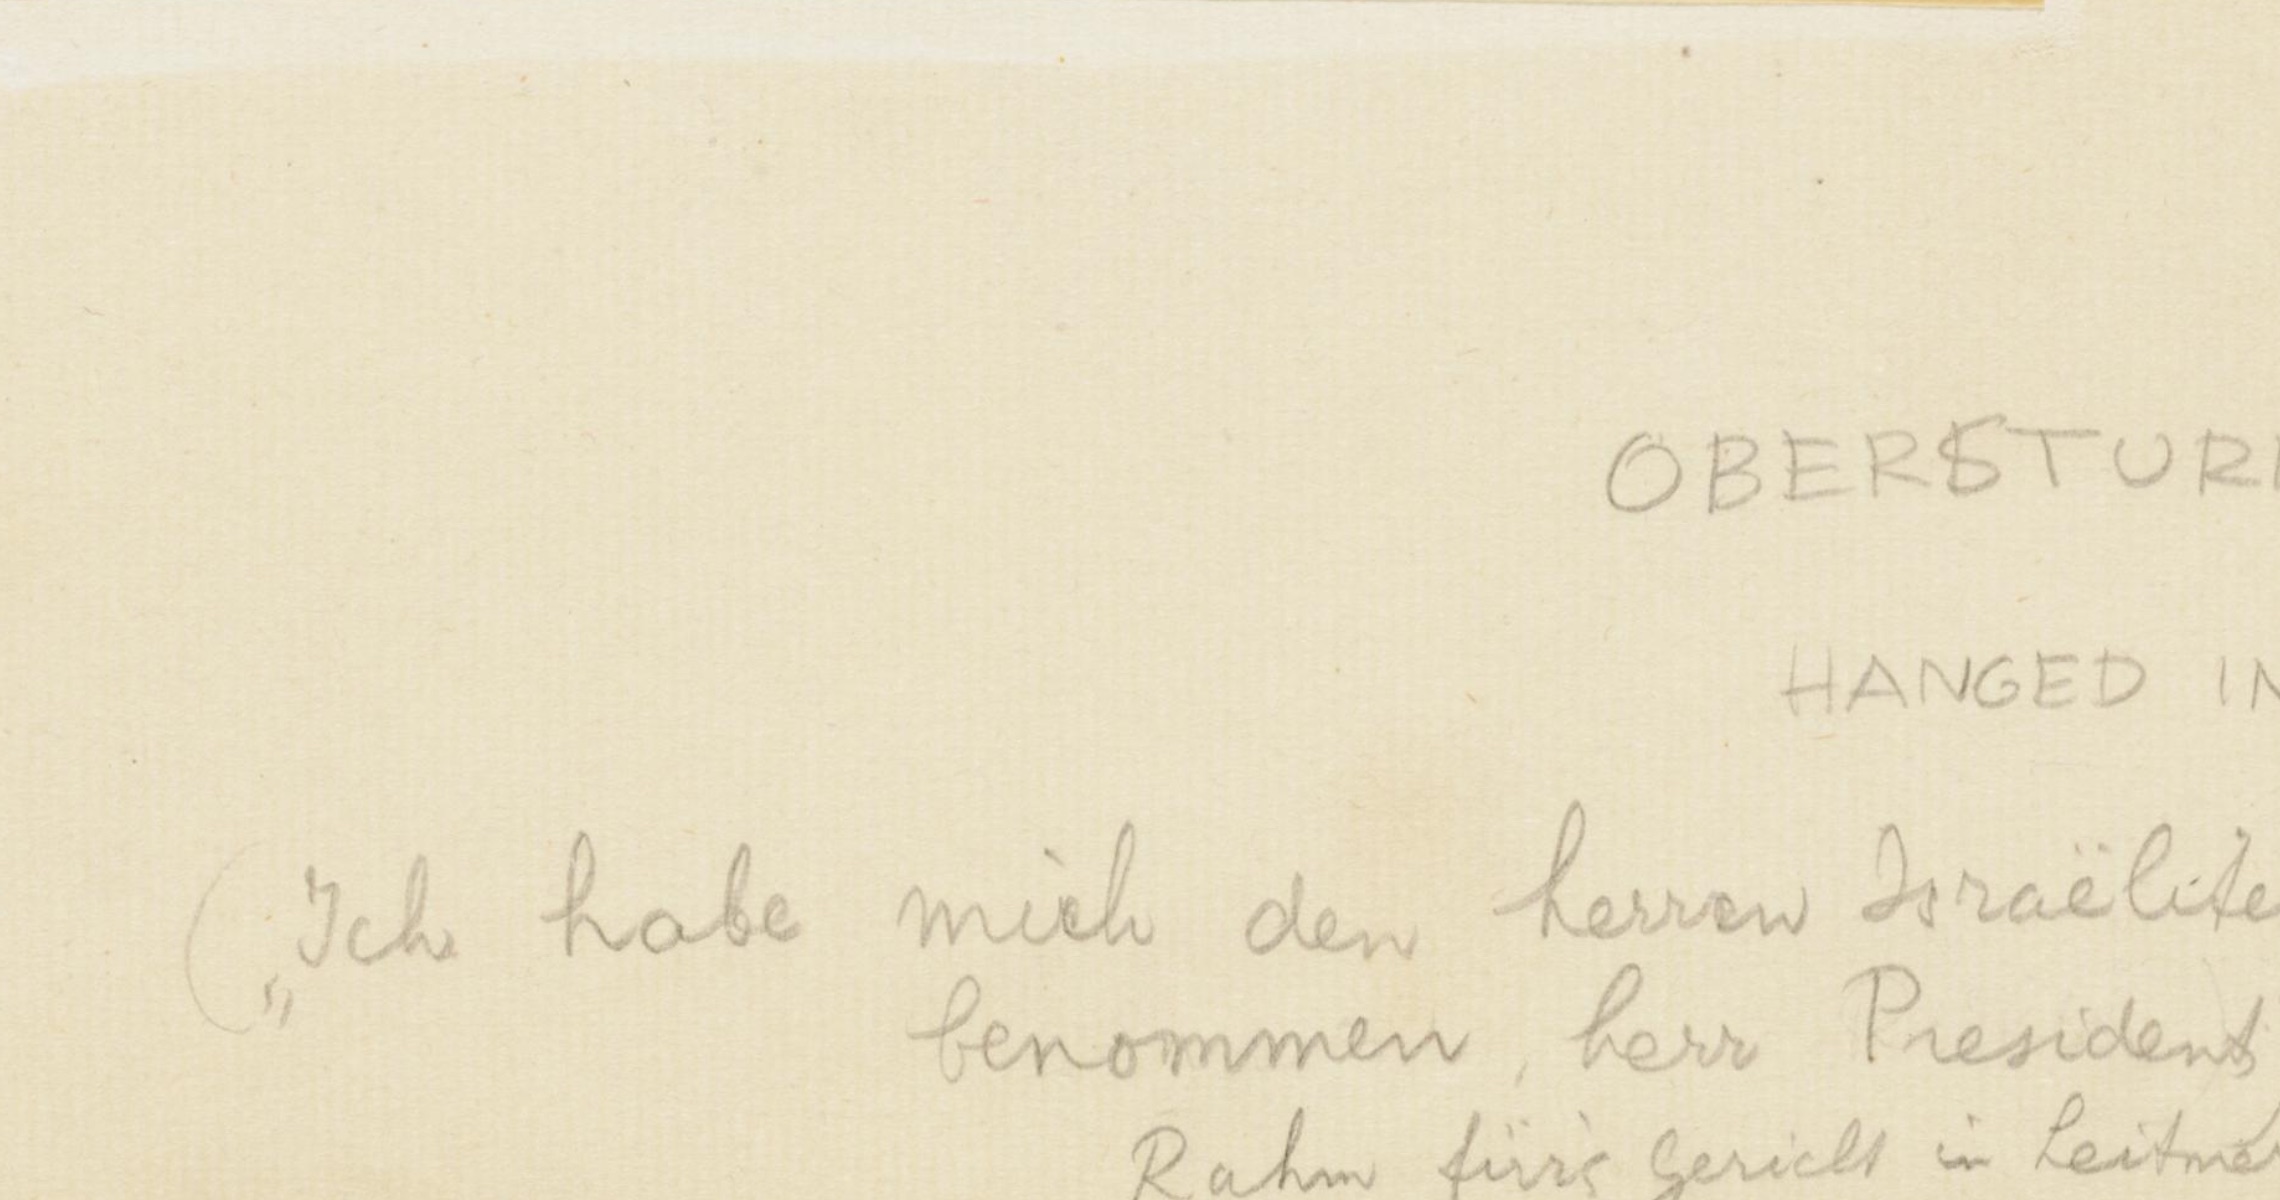 OBERSTUR
HANGED IN
(„Ich habe mich den herren Israëlite
benommen, herr President
Rahm für's Gericht in Leitme